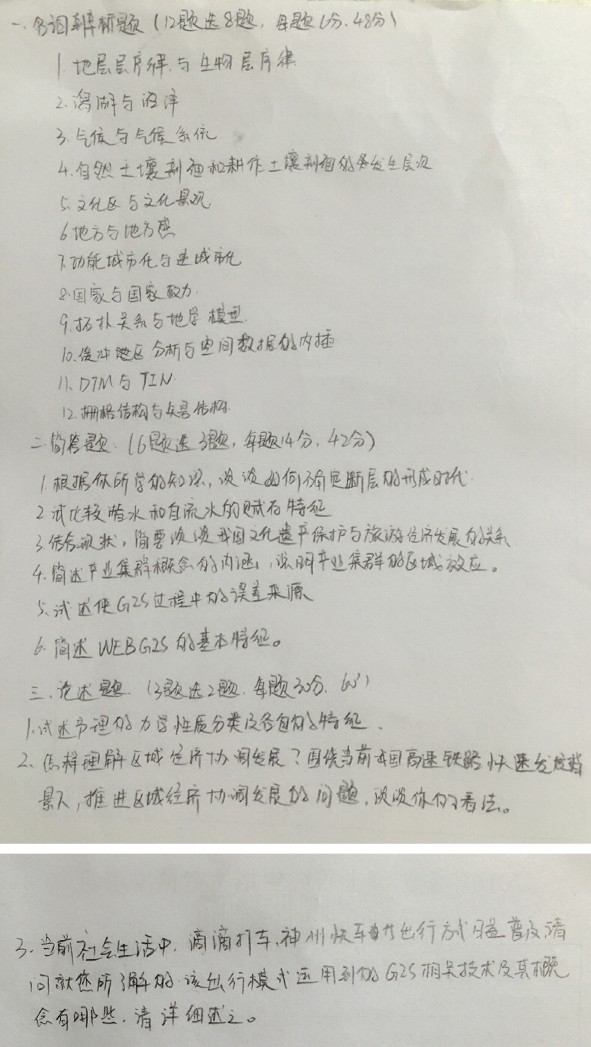 一.名词辨析题(12题选8题,每题6分,48分)
1.地层层序律与生物层序律
2.潟湖与沼泽
3.气候与气候系统
4.自然土壤剖面和耕作土壤剖面的各发生层次
5.文化区与文化景观
6.地方与地方感
7.功能城市化与逆城市化
8.国家与国家权力
9.拓扑关系与地学模型
10.缓冲地区分析与空间数据的内插
11.DTM与TIN
12.栅格结构与矢量结构
二.简答题.(6题选3题,每题14分,42分)
1.根据你所学的知识,谈谈如何确定断层的形成时代.
2.试比较潜水和自流水的赋存特征
3.结合现状,简要谈谈我国文化遗产保护与旅游经济发展的关系
4.简述产业集群概念的内涵,说明产业集群的区域效应。
5.试述使GIS过程中的误差来源
6.简述WEBGIS的基本特征。
三.论述题.(3题选2题.每题30分.60')
1.试述节理的力学性质分类及各自的特征.
2、怎样理解区域经济协调发展?围绕当前我国高速铁路快速发展背
景下,推进区域经济协调发展的问题,谈谈你的看法。
3.当前社会生活中,滴滴打车,神州快车等出行方式日益普及请
问就您所了解的.该出行模式运用到的GIS相关技术及其概
念有哪些.请详细述之。